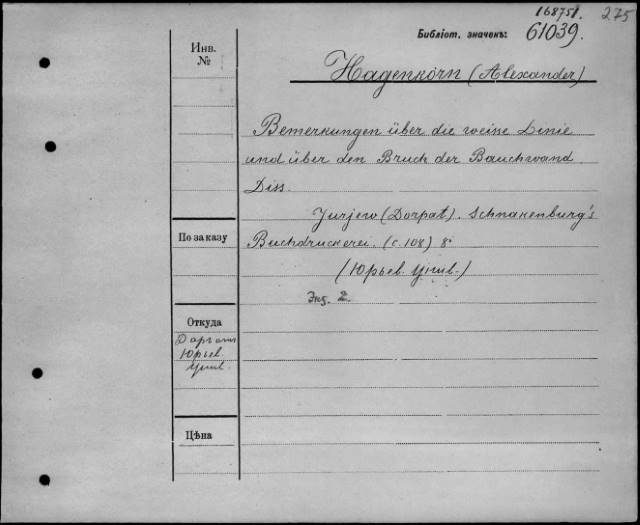 168751. 275
Библіот. значекъ: 61039.
Инв.
№
Hagenkorn (Alexander)
Bemerkungen über die weise Linie
und über den Bruch der Bauchwand.
Diss.
Jurjew (Dorpat). Schnakenburg's
По заказу
Buchdruckerei. (с. 108) 8°
(Юрьев. Унив.)
Экз. 2.
Откуда
Юрьев.
Унив.
Цѣна